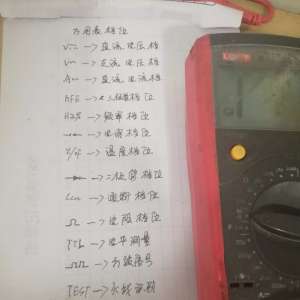 万用表档位
V⎓ → 直流电压档
V~ → 交流电压档
A⎓ → 直流电流档
hFE → 三极管档位
→ 频率档位
→ 电容档位
℃/℉ → 温度档位
→ 二极管档位
→ 通断档位
Ω → 电阻档位
TTL → 电平测量
→ 方波信号
TEST → 火线识别